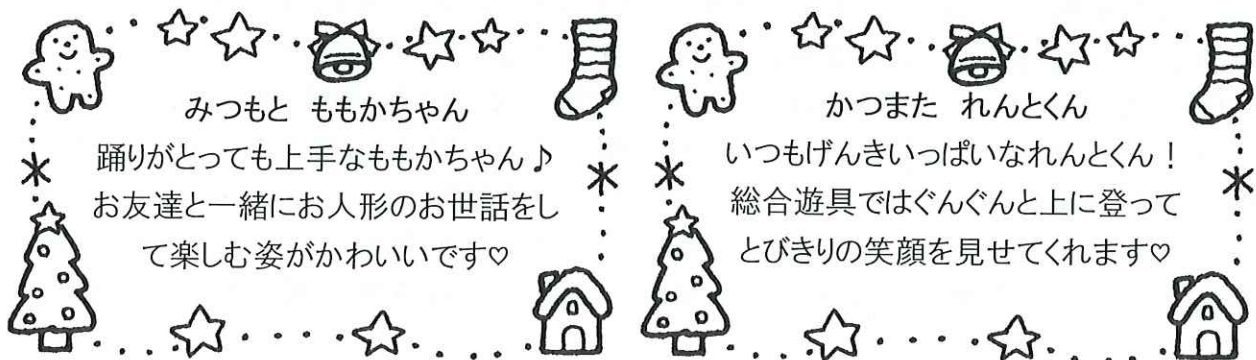 みつもと ももかちゃん
踊りがとっても上手なももかちゃん♪
お友達と一緒にお人形のお世話をし
て楽しむ姿がかわいいです♡
かつまた れんとくん
いつもげんきいっぱいなれんとくん！
総合遊具ではぐんぐんと上に登って
とびきりの笑顔を見せてくれます♡